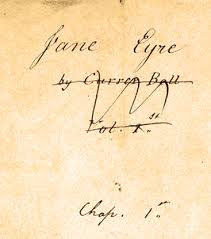 Jane Eyre
by Currer Bell
Vol. 1.st
Chap. 1.st